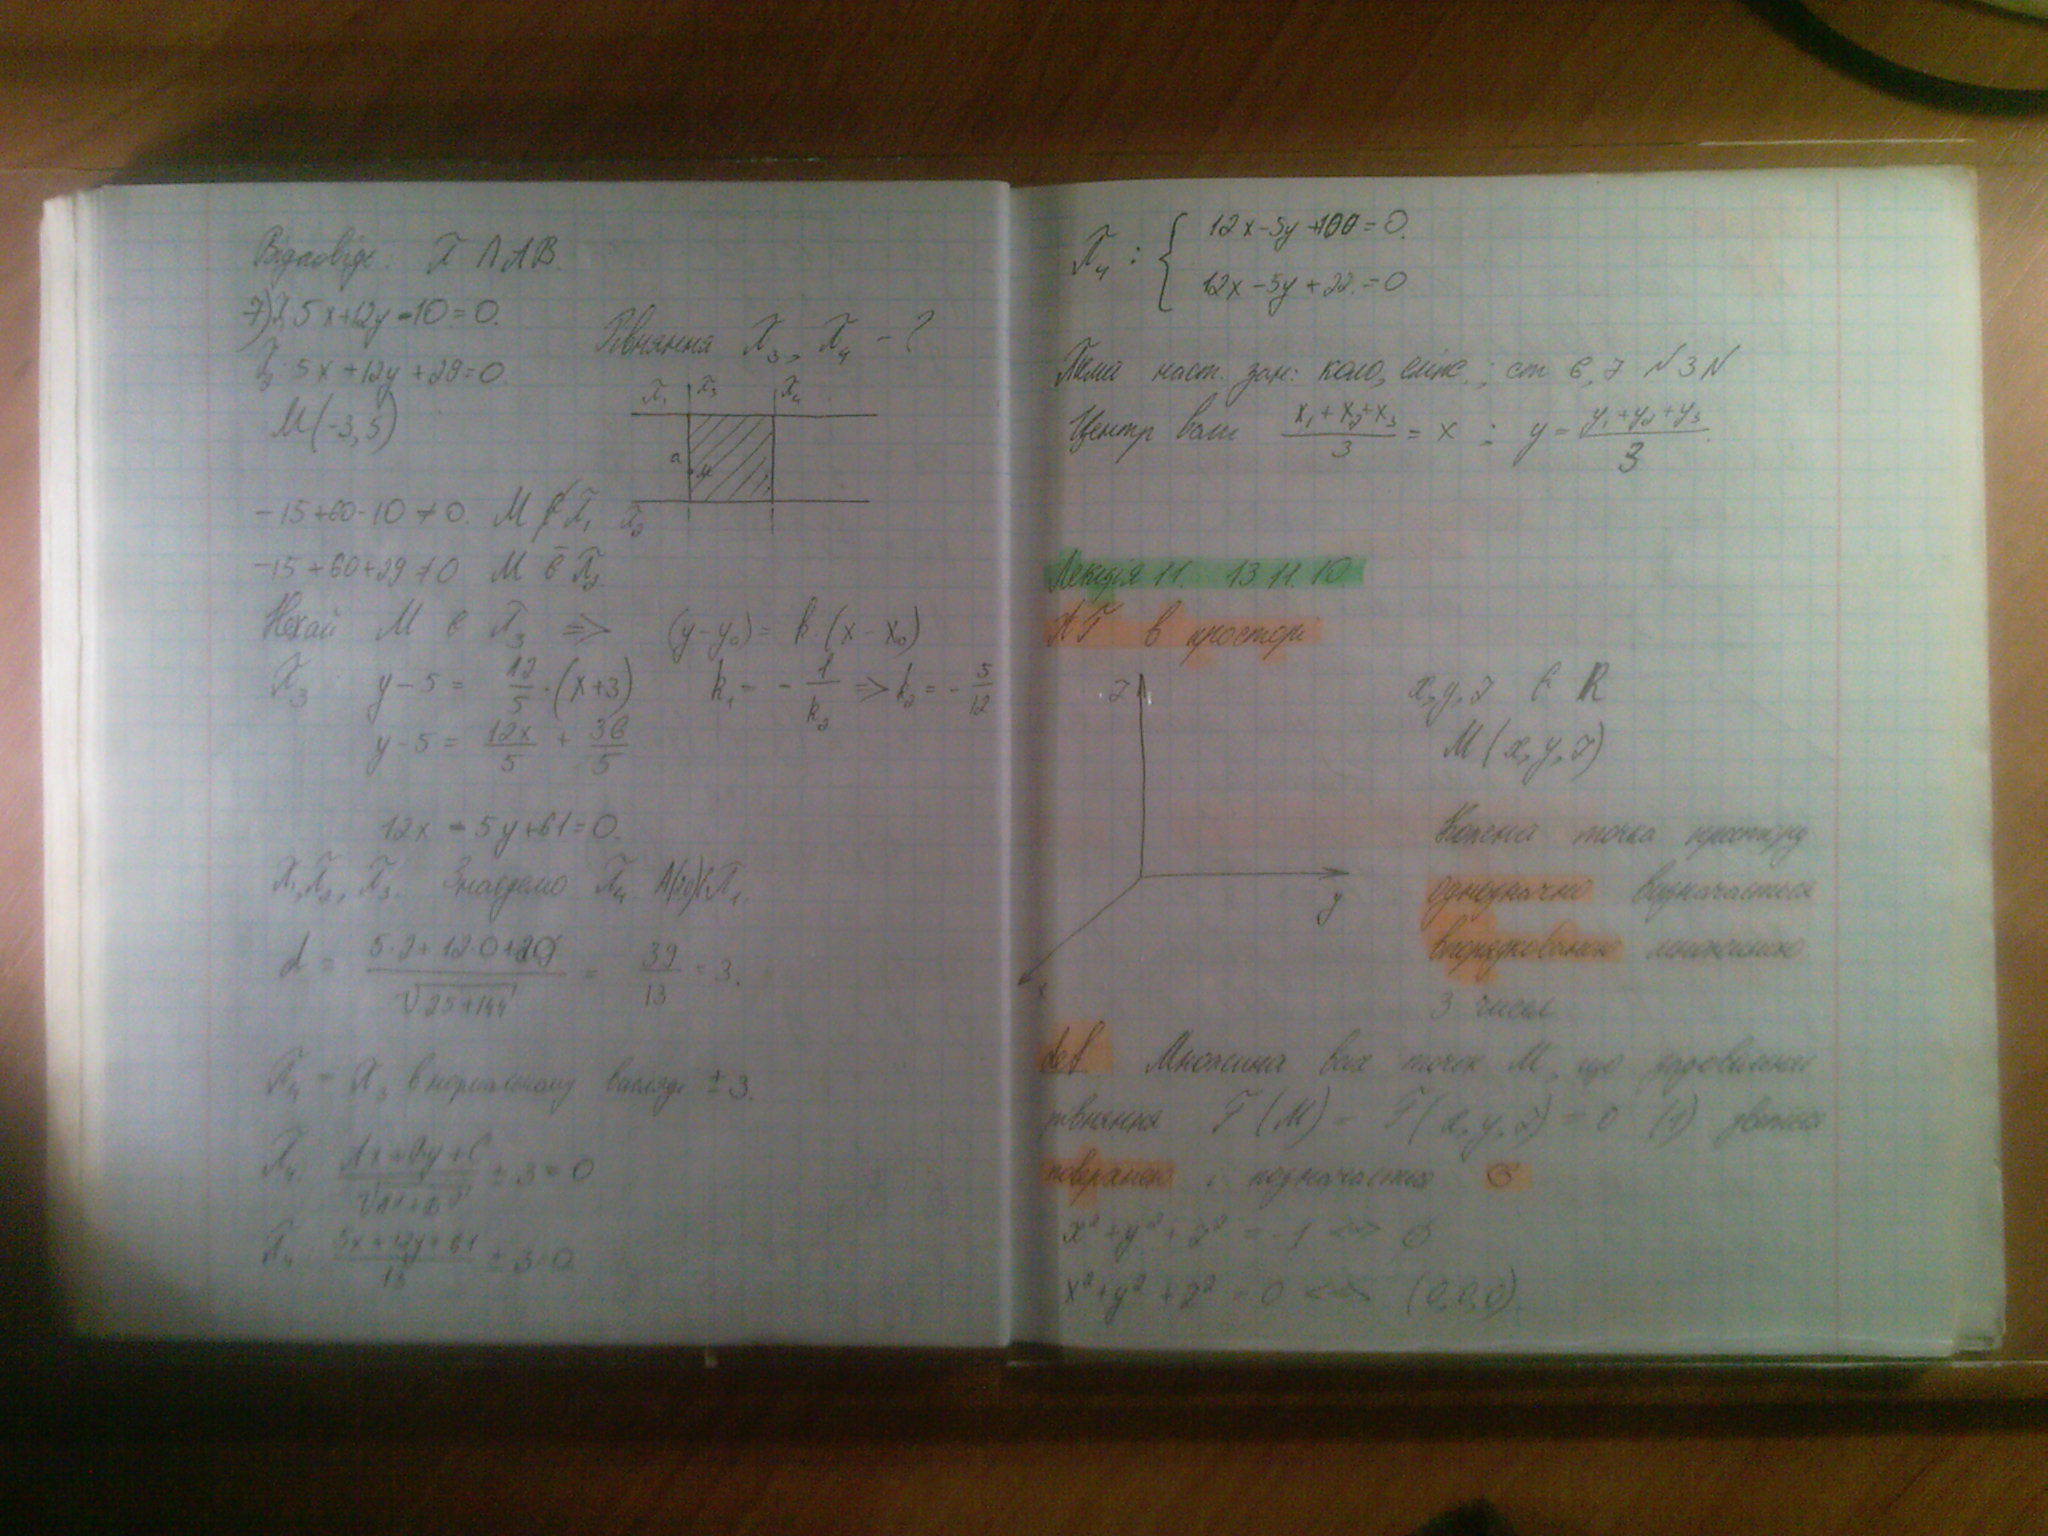 Відповідь: π ∩ AB.
7) l₁ 5x+12y-10=0.
Рівняння π₃, π₄ - ?
l₂: 5x+12y+29=0.
M(-3,5)
π₁ π₃ π₄
a M
π₂
-15+60-10≠0. M ∉ π₁
-15+60+29≠0 M ∉ π₂
Нехай M ∈ π₃ => (y-y₀) = k·(x-x₀)
π₃: y-5 = 12/5·(x+3) k₁ = -1/k₂ => k₂ = -5/12
y-5 = 12x/5 + 36/5
12x - 5y+61=0.
π₁, π₂, π₃. Знайдемо π₄. A(2,0)∈π₁.
d = (5·2+12·0+29)/√(25+144) = 39/13 = 3.
π₄ = π₃ в нормальному вигляді ±3.
π₄: (Ax+By+C)/√(A²+B²) ± 3=0
π₄: (5x+12y+61)/13 ± 3=0
π₄: { 12x-5y+100=0.
12x-5y+22=0
Тема наст. зан: коло, еліпс.; ст 6,7 N3N
Центр ваги (x₁+x₂+x₃)/3 = x ; y = (y₁+y₂+y₃)/3
Лекція 11. 13.11.10
АГ в просторі
z
x,y,z ∈ R
M(x,y,z)
Кожена точка простору
однозначно визначається
y
впорядкованою множиною
x
3 чисел
def. Множина всіх точок M, що задовільняє
рівняння F(M) = F(x,y,z) = 0 (1) зветься
поверхнею і позначається σ
x²+y²+z² = -1 <=> ∅
x²+y²+z² = 0 <=> (0,0,0).